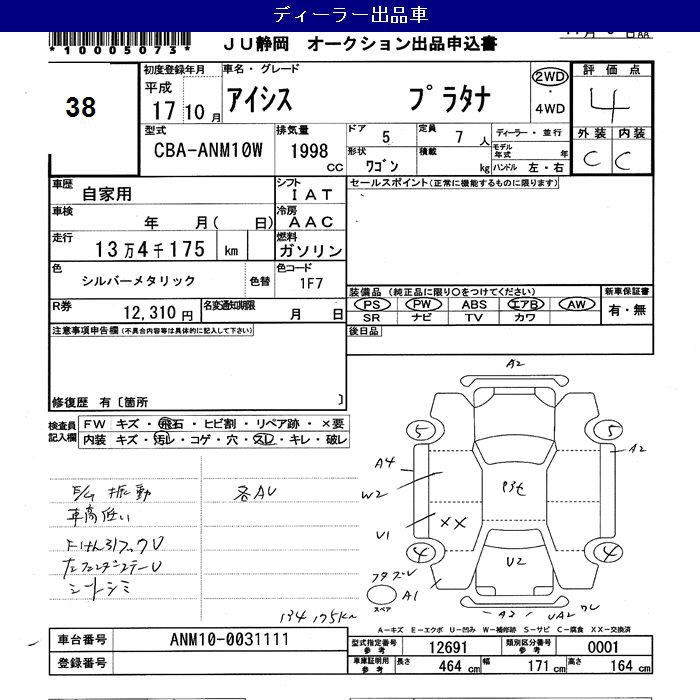 ディーラー出品車
*10005073*
JU静岡 オークション出品申込書
38
初度登録年月 車名・グレード 評価点
平成 17 10 月 アイシス プラタナ 2WD ・ 4WD 4
外装 内装
C C
型式 排気量 ドア 5 定員 7 人 ディーラー・並行
CBA-ANM10W 1998 CC 形状 ワゴン 積載 kg モデル年式 年
ハンドル 左・右
車歴 自家用 シフト IAT セールスポイント(正常に機能するものに限ります)
車検 年 月( 日) 冷房 AAC
走行 13万4千175 km 燃料 ガソリン
色 シルバーメタリック 色替 色コード 1F7
装備品 (純正品に限り○をつけてください) 新車保証書
PS PW ABS エアB AW 有・無
SR ナビ TV カワ
R券 12,310 円 名変通知期限 月 日
後日品
注意事項申告欄(不具合内容等は具体的に記入して下さい)
修復歴 有〔箇所 〕
検査員記入欄 FW キズ・飛石・ヒビ割・リペア跡・×要
内装 キズ・汚レ・コゲ・穴・スレ・キレ・破レ
A2
5 5
A4 A2
W2
U1 XX
4 4
U2
A1
スペア
E/G 振動 各AU
車高低い
シートシミ
134175km
A2
A-キズ E-エクボ U-凹み W-補修跡 S-サビ C-腐食 XX-交換済
車台番号 ANM10-0031111
登録番号
型式指定番号 参考 12691 類別区分番号 参考 0001
車庫証明用 参考 長さ 464 cm 幅 171 cm 高さ 164 cm